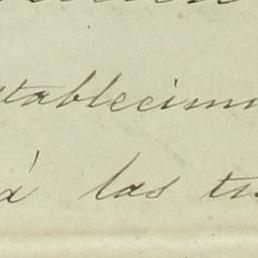 stablecim
á las tr